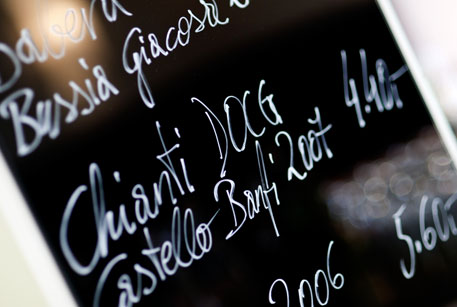 Bussia Giacosa
Chianti DOCG
Castello Banfi 2007 4.40
2006 5.60